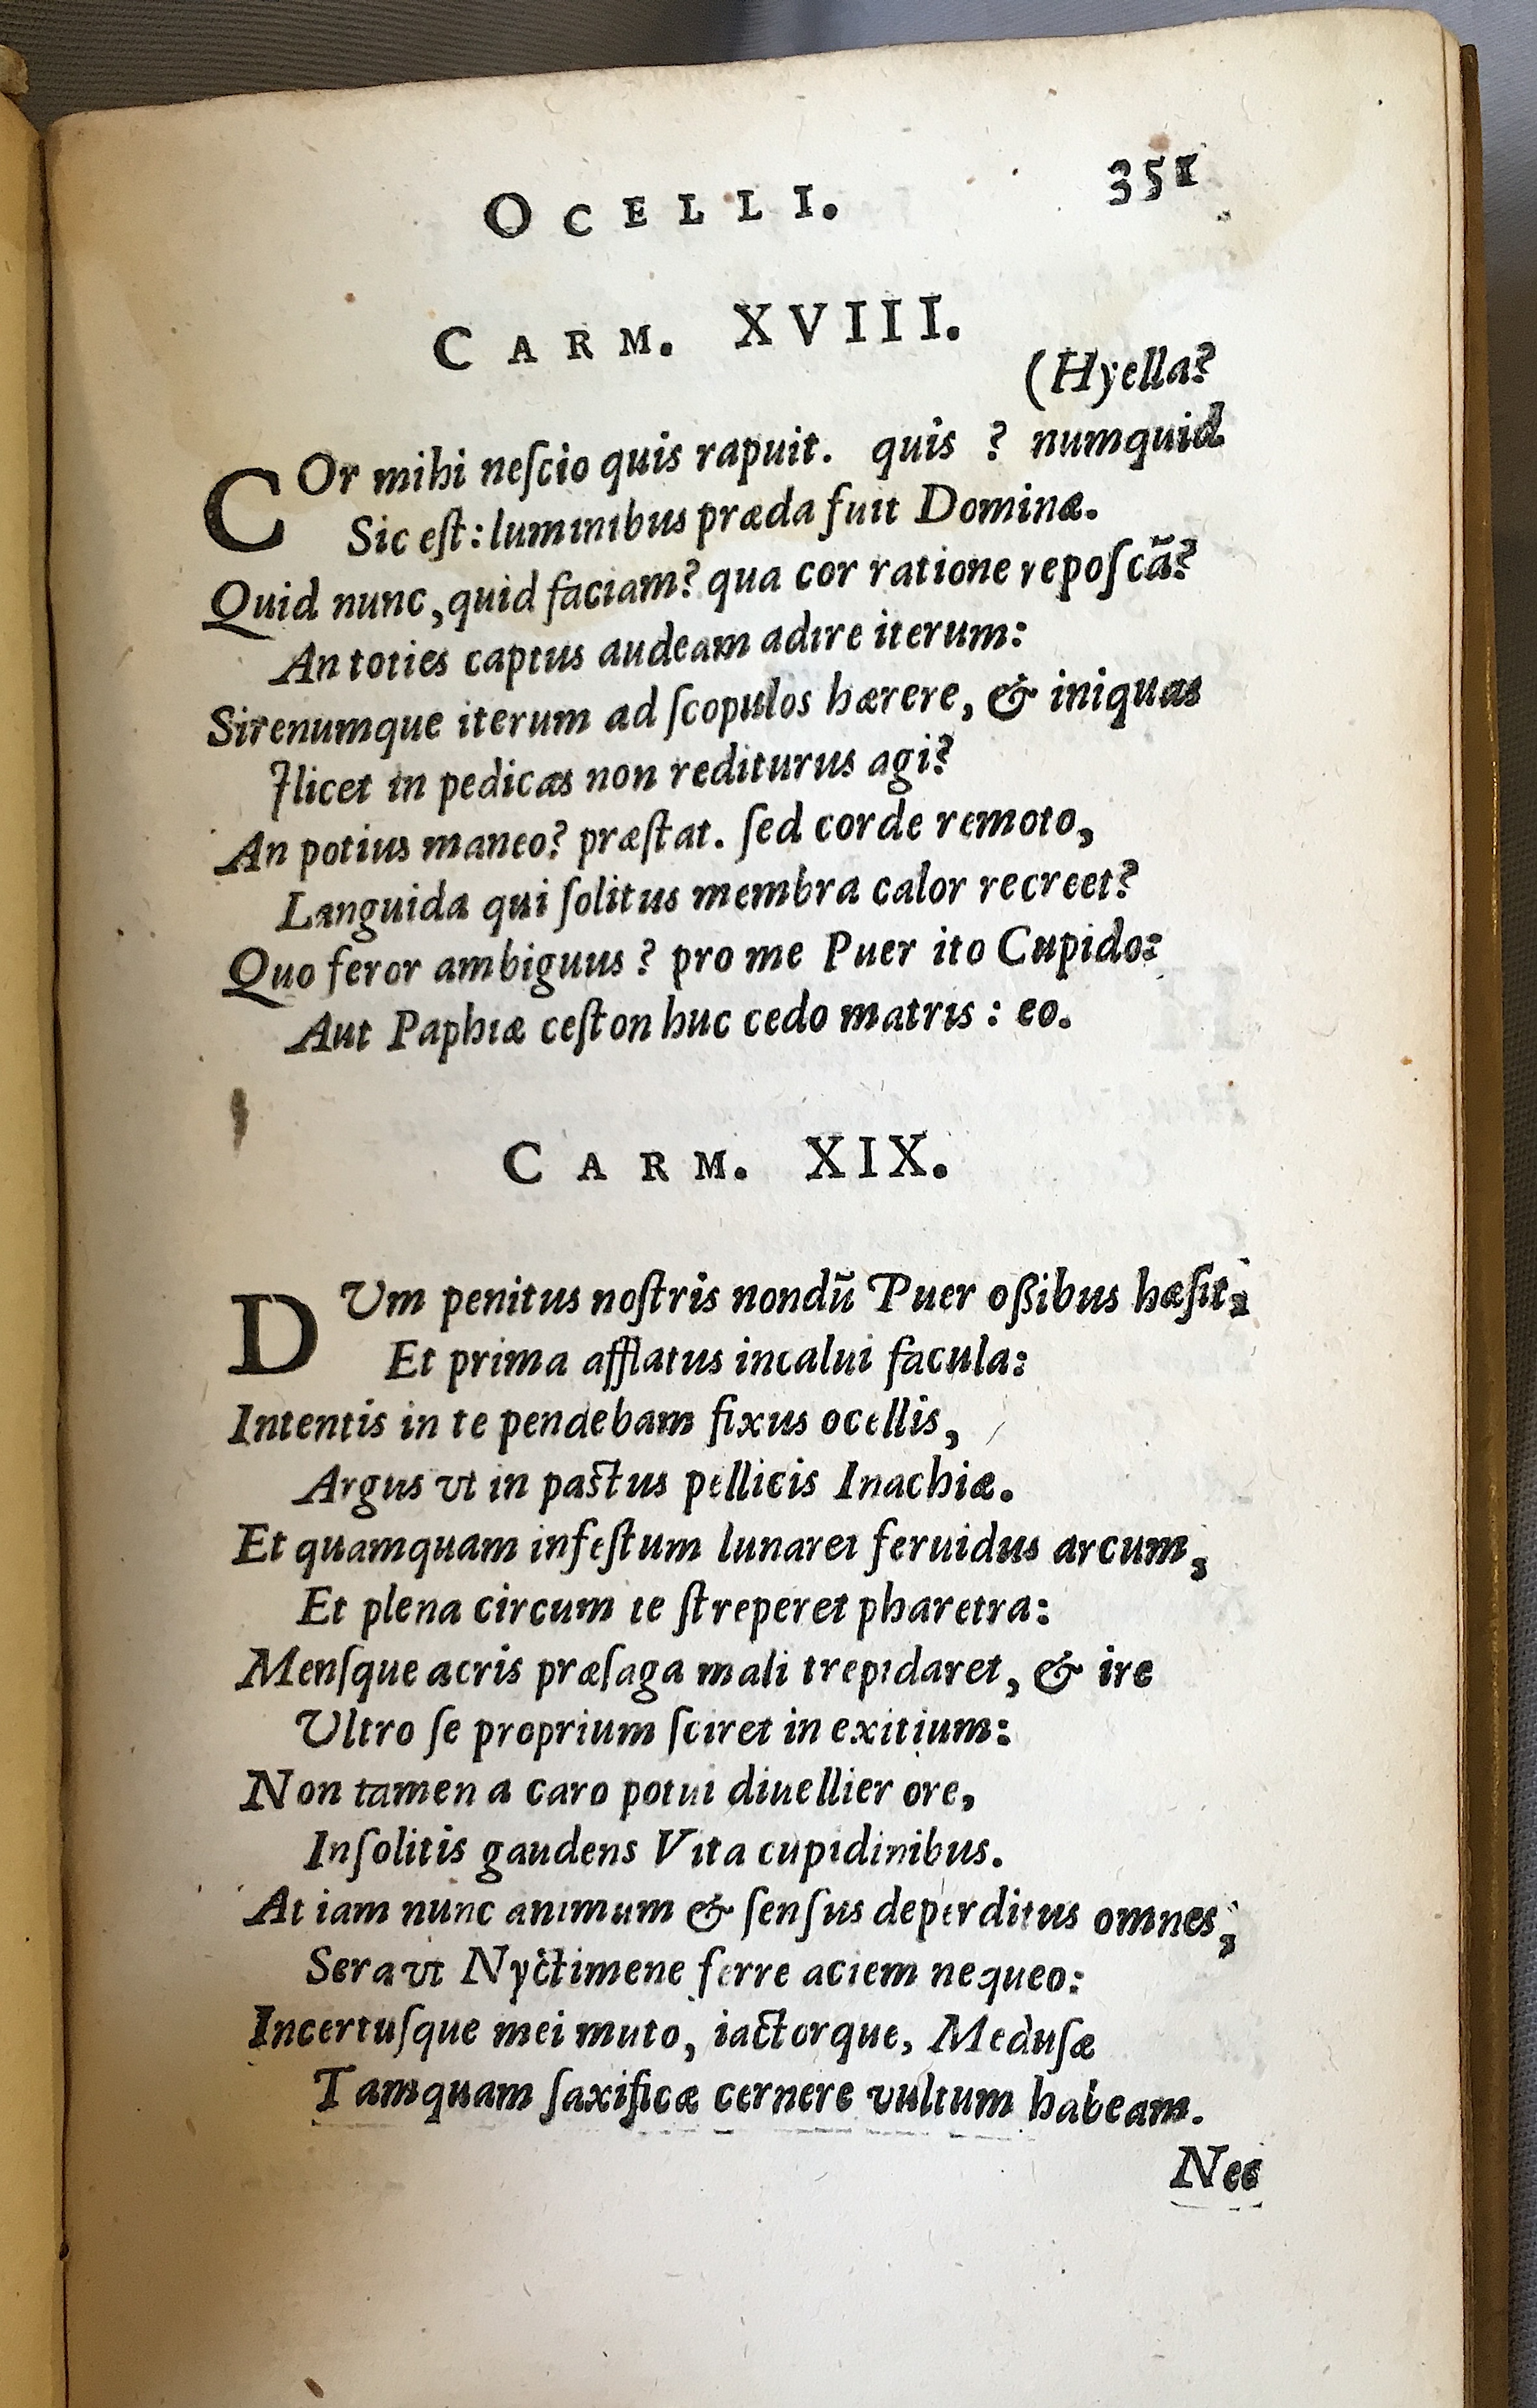 OCELLI. 351
CARM. XVIII.
(Hyella?
COr mihi neſcio quis rapuit. quis ? numquid
Sic eſt: luminibus præda fuit Dominæ.
Quid nunc, quid faciam? qua cor ratione repoſcā?
An toties captus audeam adire iterum:
Sirenumque iterum ad ſcopulos hærere, & iniquas
Ilicet in pedicas non rediturus agi?
An potius maneo? præſtat. ſed corde remoto,
Languida qui ſolitus membra calor recreet?
Quo feror ambiguus ? pro me Puer ito Cupido:
Aut Paphiæ ceſton huc cedo matris : eo.
CARM. XIX.
DUm penitus noſtris nondū Puer oßibus hæſit,
Et prima afflatus incalui facula:
Intentis in te pendebam fixus ocellis,
Argus vt in pastus pellicis Inachiæ.
Et quamquam infeſtum lunaret feruidus arcum,
Et plena circum te ſtreperet pharetra:
Menſque acris præſaga mali trepidaret, & ire
Ultro ſe proprium ſciret in exitium:
Non tamen a caro potui diuellier ore,
Inſolitis gaudens Vita cupidinibus.
At iam nunc animum & ſenſus deperditus omnes,
Sera vt Nyctimene ferre aciem nequeo:
Incertuſque mei muto, iactorque, Meduſæ
Tamquam ſaxificæ cernere vultum habeam.
Nec